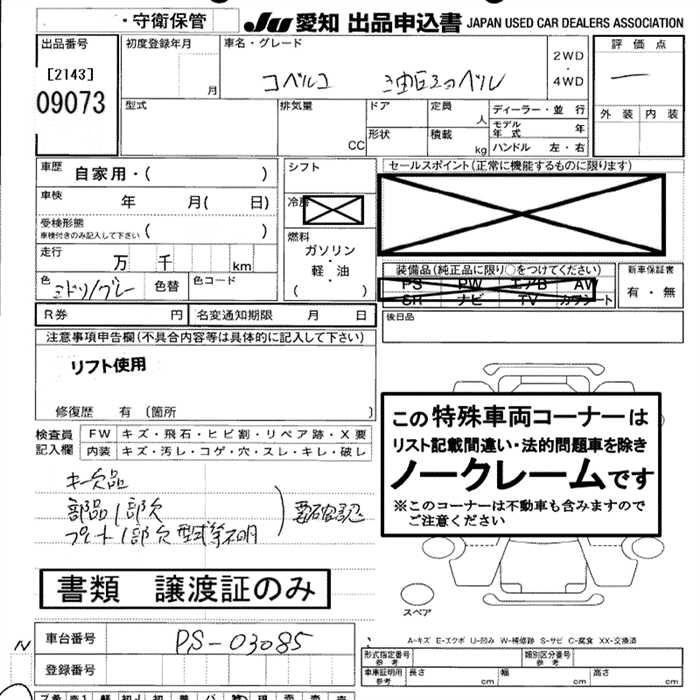 ・守衛保管
JU 愛知 出品申込書 JAPAN USED CAR DEALERS ASSOCIATION
出品番号
[2143]
09073
初度登録年月
月
車名・グレード
コベルコ 油圧ショベル
2WD
・
4WD
評価点
ー
外装 内装
型式
排気量
CC
ドア
形状
定員
人
積載
kg
ディーラー・並行
モデル年式 年
ハンドル 左・右
車歴 自家用・( )
車検 年 月( 日)
受検形態
車検付きのみ記入して下さい ( )
走行 万 千 km
色 ミドリ/グレー 色替 色コード
シフト
冷房
燃料
ガソリン
・
軽・油
( )
セールスポイント(正常に機能するものに限ります)
装備品(純正品に限り○をつけてください)
PS PW エアB AW
SR ナビ TV カワシート
新車保証書
有・無
R券 円 名変通知期限 月 日
後日品
注意事項申告欄(不具合内容等は具体的に記入して下さい)
リフト使用
修復歴 有 (箇所 )
検査員記入欄
FW キズ・飛石・ヒビ割・リペア跡・X要
内装 キズ・汚レ・コゲ・穴・スレ・キレ・破レ
キー欠品
部品1部欠
プレート1部欠 型式等不明
要確認
この特殊車両コーナーは
リスト記載間違い・法的問題車を除き
ノークレームです
※このコーナーは不動車も含みますので
ご注意ください
書類 譲渡証のみ
スペア
A-キズ E-エクボ U-凹み W-補修跡 S-サビ C-腐食 XX-交換済
N
車台番号 PS-03085
登録番号
形式指定番号
参考
類別区分番号
参考
車庫証明用
参考
長さ cm 幅 cm 高さ cm